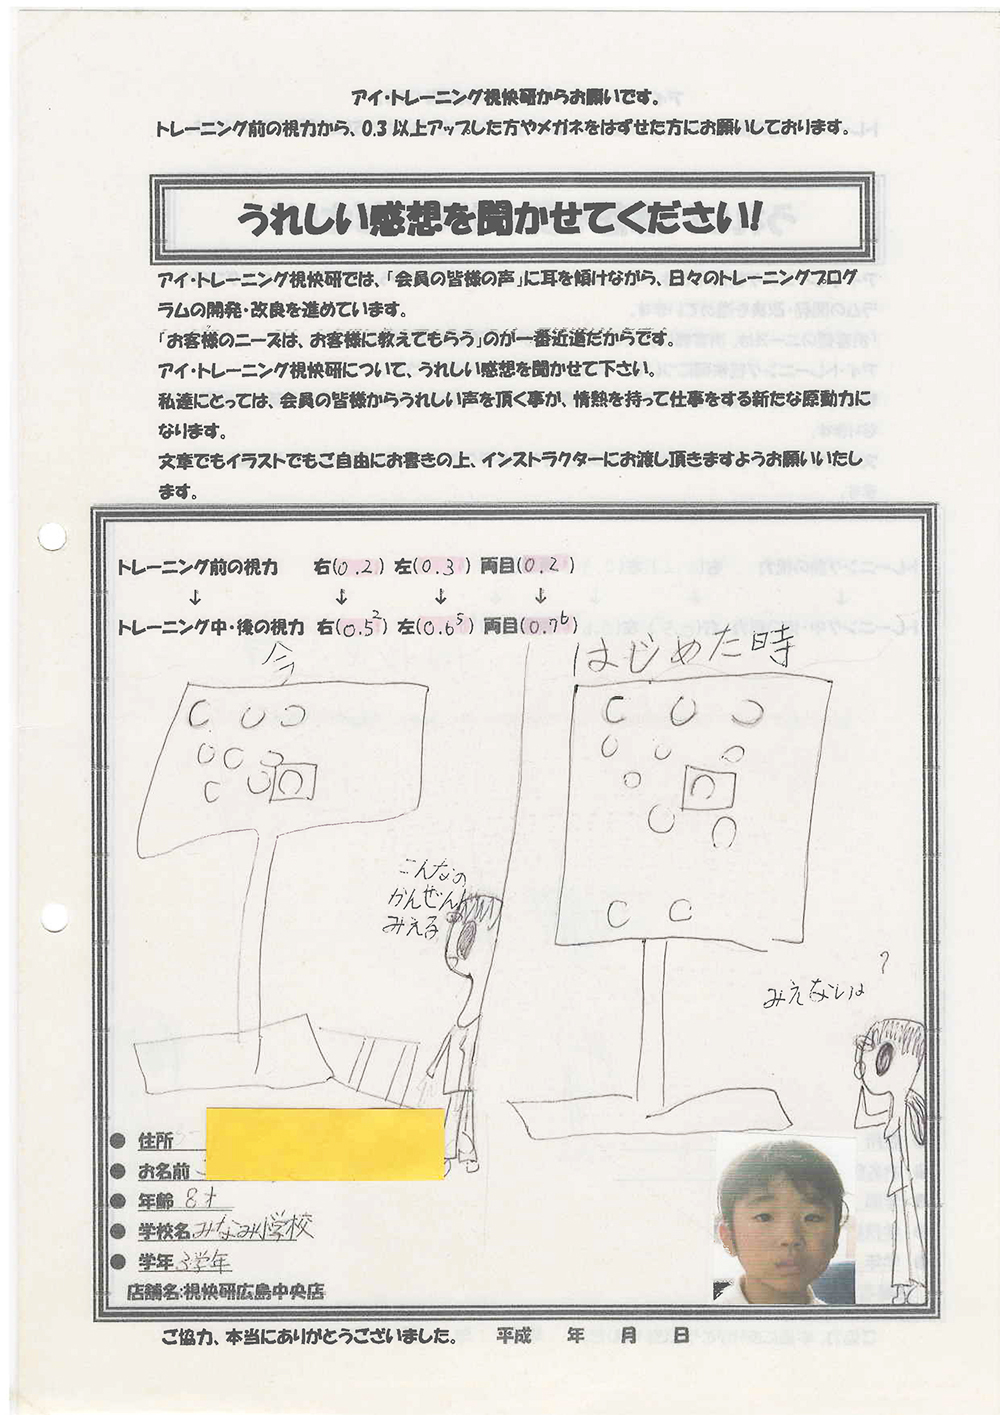 アイ・トレーニング視快研からお願いです。
トレーニング前の視力から、0.3以上アップした方やメガネをはずせた方にお願いしております。
うれしい感想を聞かせてください!
アイ・トレーニング視快研では、「会員の皆様の声」に耳を傾けながら、日々のトレーニングプログ
ラムの開発・改良を進めています。
「お客様のニーズは、お客様に教えてもらう」のが一番近道だからです。
アイ・トレーニング視快研について、うれしい感想を聞かせて下さい。
私達にとっては、会員の皆様からうれしい声を頂く事が、情熱を持って仕事をする新たな原動力に
なります。
文章でもイラストでもご自由にお書きの上、インストラクターにお渡し頂きますようお願いいたし
ます。
トレーニング前の視力 右(0.2) 左(0.3) 両目(0.2)
↓ ↓ ↓ ↓
トレーニング中・後の視力 右(0.5²) 左(0.6⁵) 両目(0.7⁶)
今
はじめた時
こんなの
かんぜん
みえる
?
みえないは
● 住所
● お名前
● 年齢 8才
● 学校名 みなみ小学校
● 学年 3学年
店舗名:視快研広島中央店
ご協力、本当にありがとうございました。 平成 年 月 日